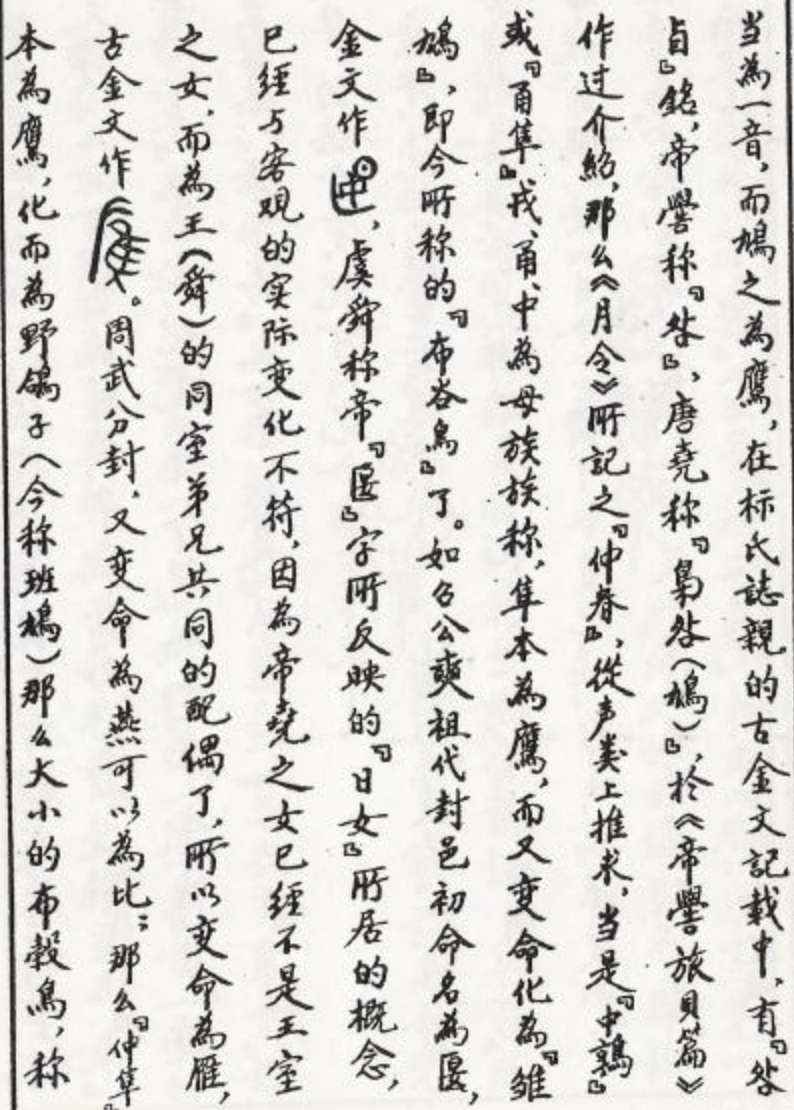 当為一音，而鳩之為鷹，在标氏誌親的古金文記载中，有『咎
卣』銘，帝嚳称『咎』，唐堯称『梟咎（鳩）』，於《帝嚳旅貝篇》
作过介紹，那么《月令》所記之『仲春』，從声类上推求，当是『中鶉』
或『甬隼』戎、甬、中為母族族称，隼本為鷹，而又变命化為『雏
鳩』，即今所称的『布谷鳥』了。如召公奭祖代封邑初命名為匽，
金文作，虞舜称帝『匽』字所反映的『日女』所居的概念，
已經与客观的实际变化不符，因為帝堯之女已經不是王室
之女，而為王（舜）的同室弟兄共同的配偶了，所以变命為雁，
古金文作。周武分封，又变命為燕可以為比；那么『仲隼』
本為鷹，化而為野鴿子（今称班鳩）那么大小的布穀鳥，称